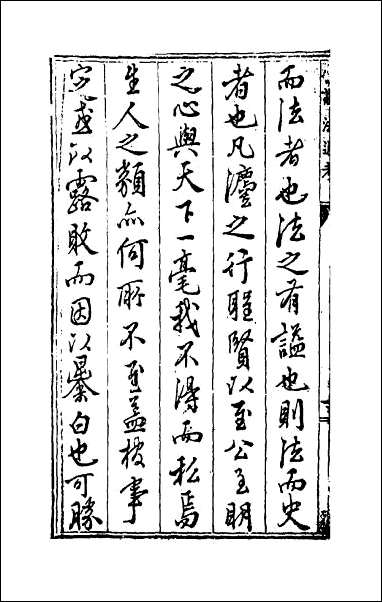 而法者也法之有諡也則法而史
者也凡瀍之行雖賢以至公至明
之心與天下一毫我不得而私焉
生人之類亦何所不至蓋核事
定或以露敗而因以暴白也可勝